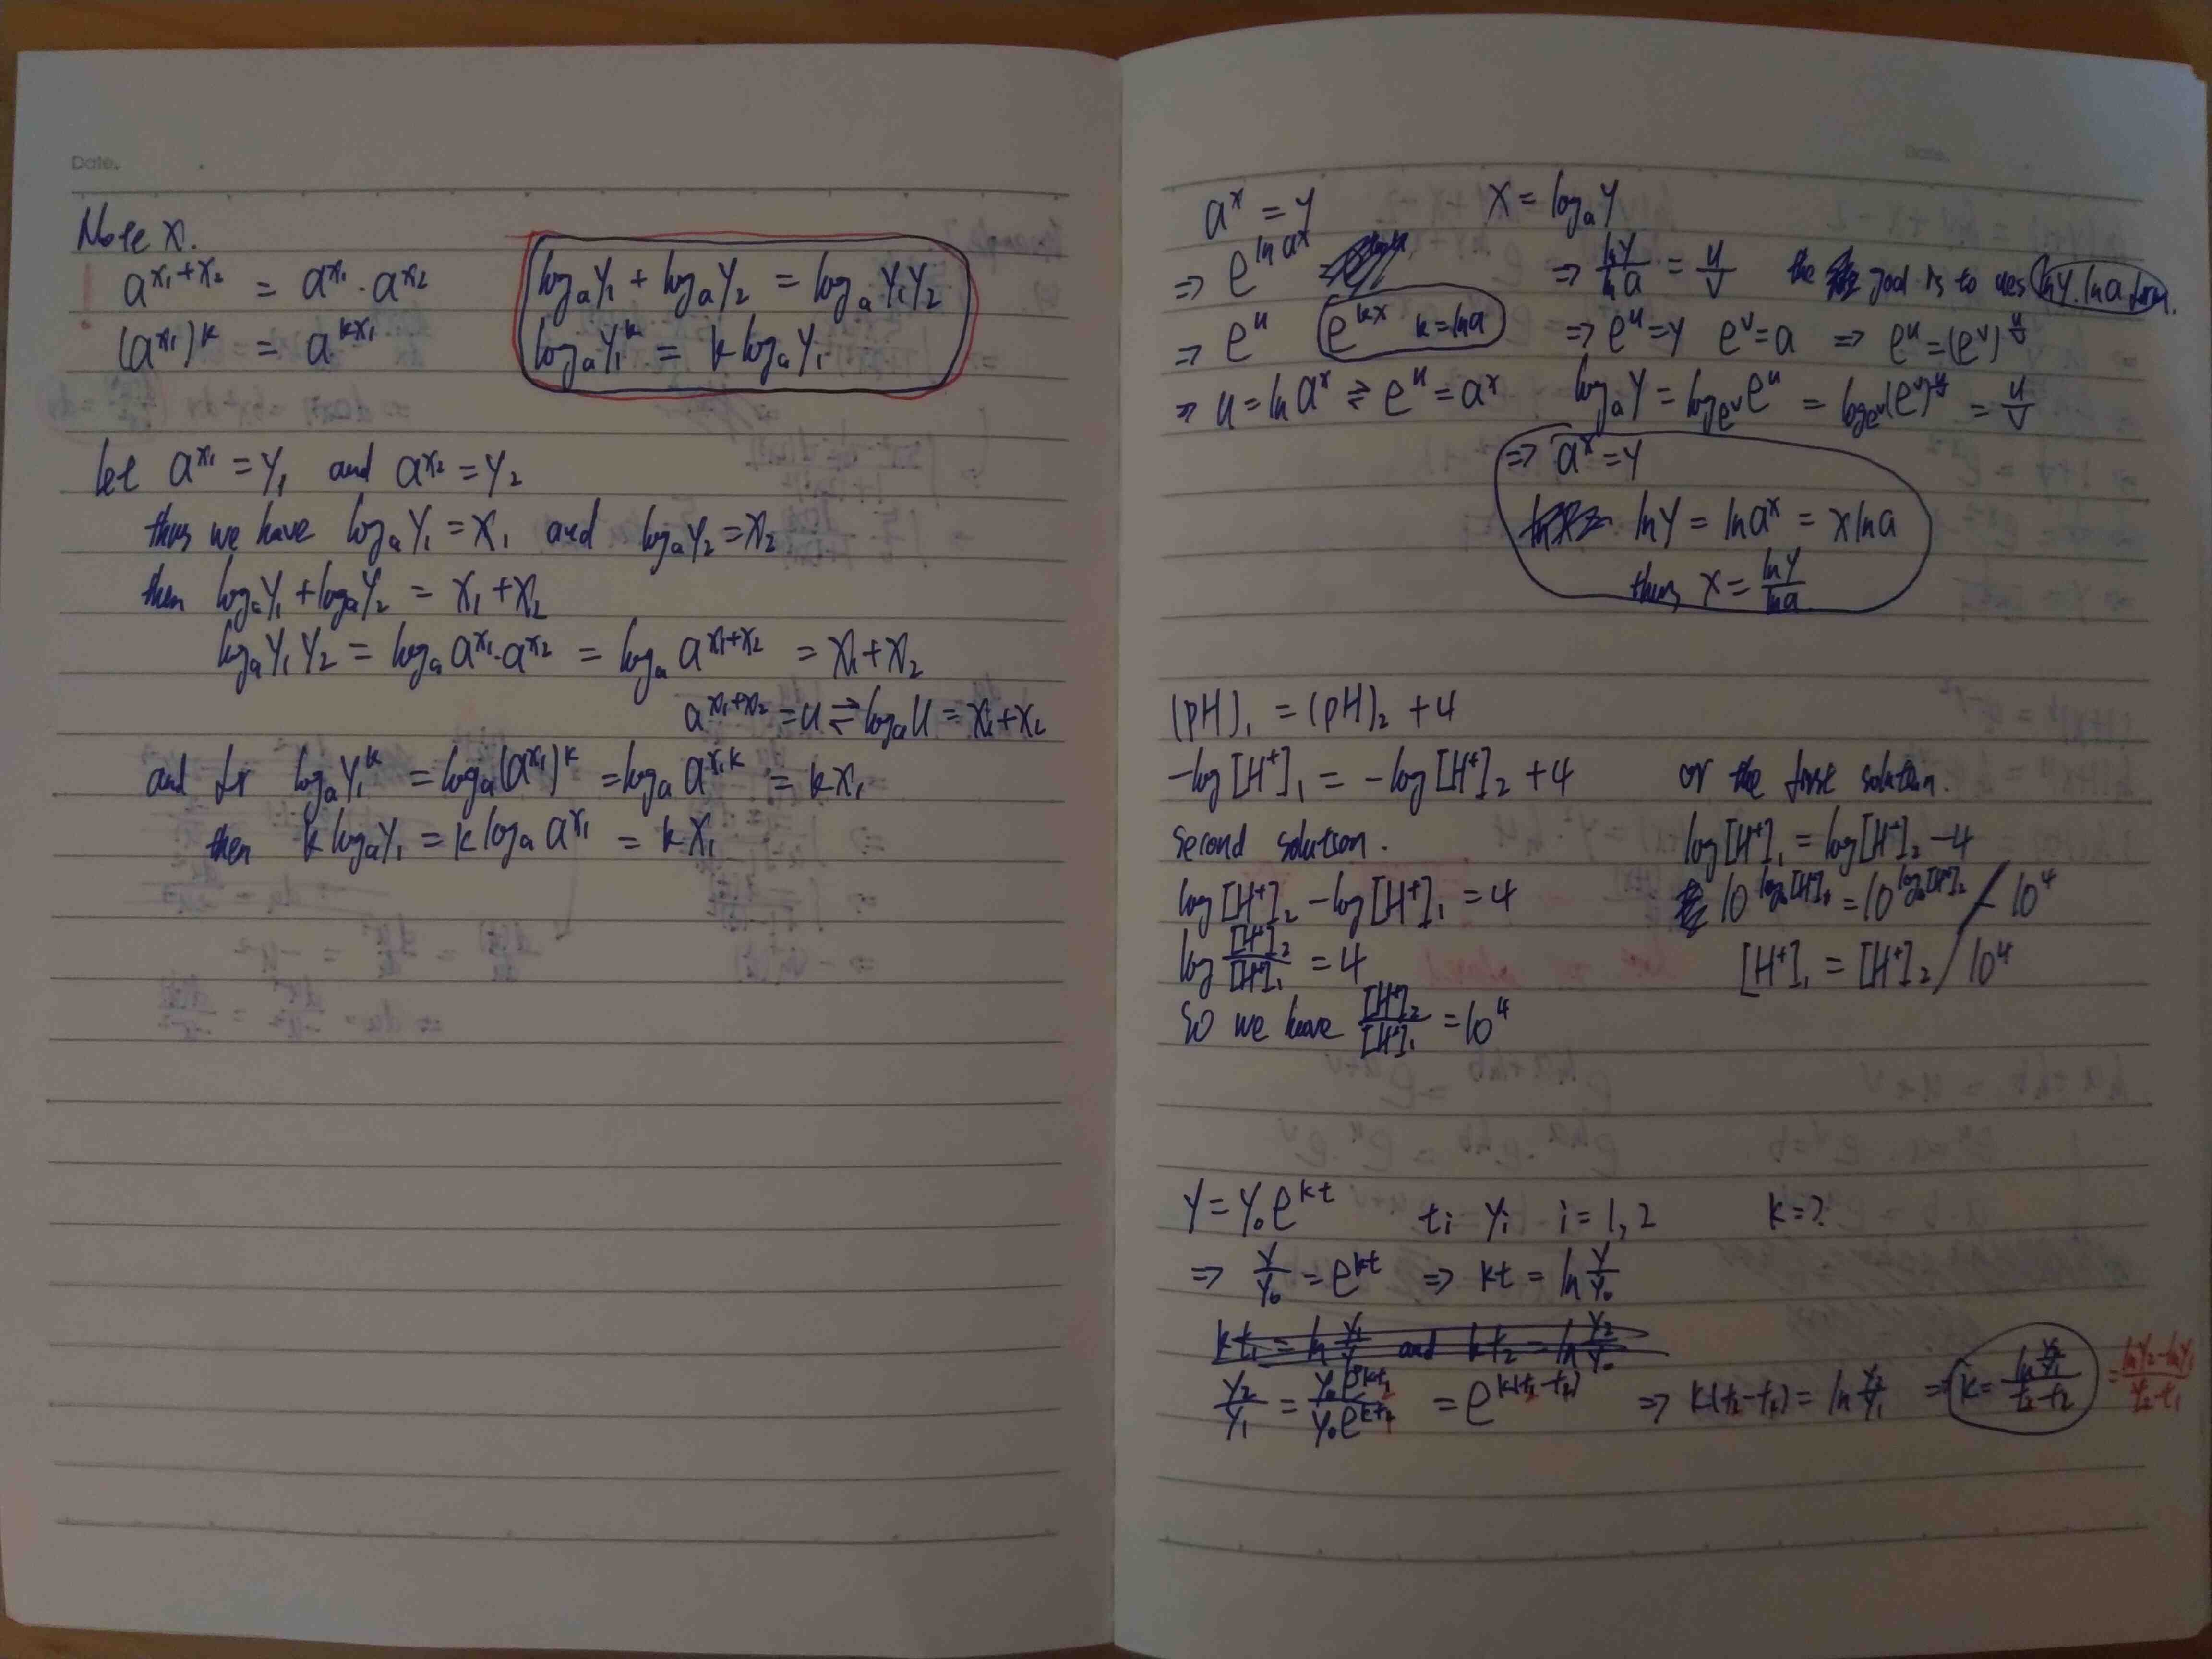 Date.
Note X.
a^{x₁+x₂} = a^{x₁}·a^{x₂}
(a^{x₁})^k = a^{kx₁}
log_a y₁ + log_a y₂ = log_a y₁y₂
log_a y₁^k = k log_a y₁
let a^{x₁} = y₁ and a^{x₂} = y₂
thus we have log_a y₁ = x₁ and log_a y₂ = x₂
then log_a y₁ + log_a y₂ = x₁ + x₂
log_a y₁y₂ = log_a a^{x₁}·a^{x₂} = log_a a^{x₁+x₂} = x₁ + x₂
a^{x₁+x₂} = u ⇌ log_a u = x₁ + x₂
and for log_a y₁^k = log_a (a^{x₁})^k = log_a a^{x₁k} = kx₁
then k log_a y₁ = k log_a a^{x₁} = kx₁
Date.
a^x = y x = log_a y
⇒ e^{ln a^x} ⇒ ln y / ln a = u/v the goal is to ues ln y. ln a form.
⇒ e^u e^{kx} k = ln a ⇒ e^u = y e^v = a ⇒ e^u = (e^v)^{u/v}
⇒ u = ln a^x ⇌ e^u = a^x log_a y = log_{e^v} e^u = log_{e^v} (e^v)^{u/v} = u/v
⇒ a^x = y
ln y = ln a^x = x ln a
thus x = ln y / ln a
(pH)₁ = (pH)₂ + 4
-log [H⁺]₁ = -log [H⁺]₂ + 4 or the first solution.
Second solution. log [H⁺]₁ = log [H⁺]₂ - 4
log [H⁺]₂ - log [H⁺]₁ = 4 10^{log [H⁺]₁} = 10^{log [H⁺]₂} / 10⁴
log [H⁺]₂/[H⁺]₁ = 4 [H⁺]₁ = [H⁺]₂ / 10⁴
So we have [H⁺]₂/[H⁺]₁ = 10⁴
y = y₀e^{kt} tᵢ yᵢ i = 1, 2 k = ?
⇒ y/y₀ = e^{kt} ⇒ kt = ln y/y₀
kt₁ = ln y₁/y₀ and kt₂ = ln y₂/y₀
y₂/y₁ = y₀e^{kt₂}/y₀e^{kt₁} = e^{k(t₂-t₁)} ⇒ k(t₂-t₁) = ln y₂/y₁ ⇒ k = (ln y₂/y₁)/(t₂-t₂) = (ln y₂ - ln y₁)/(t₂-t₁)